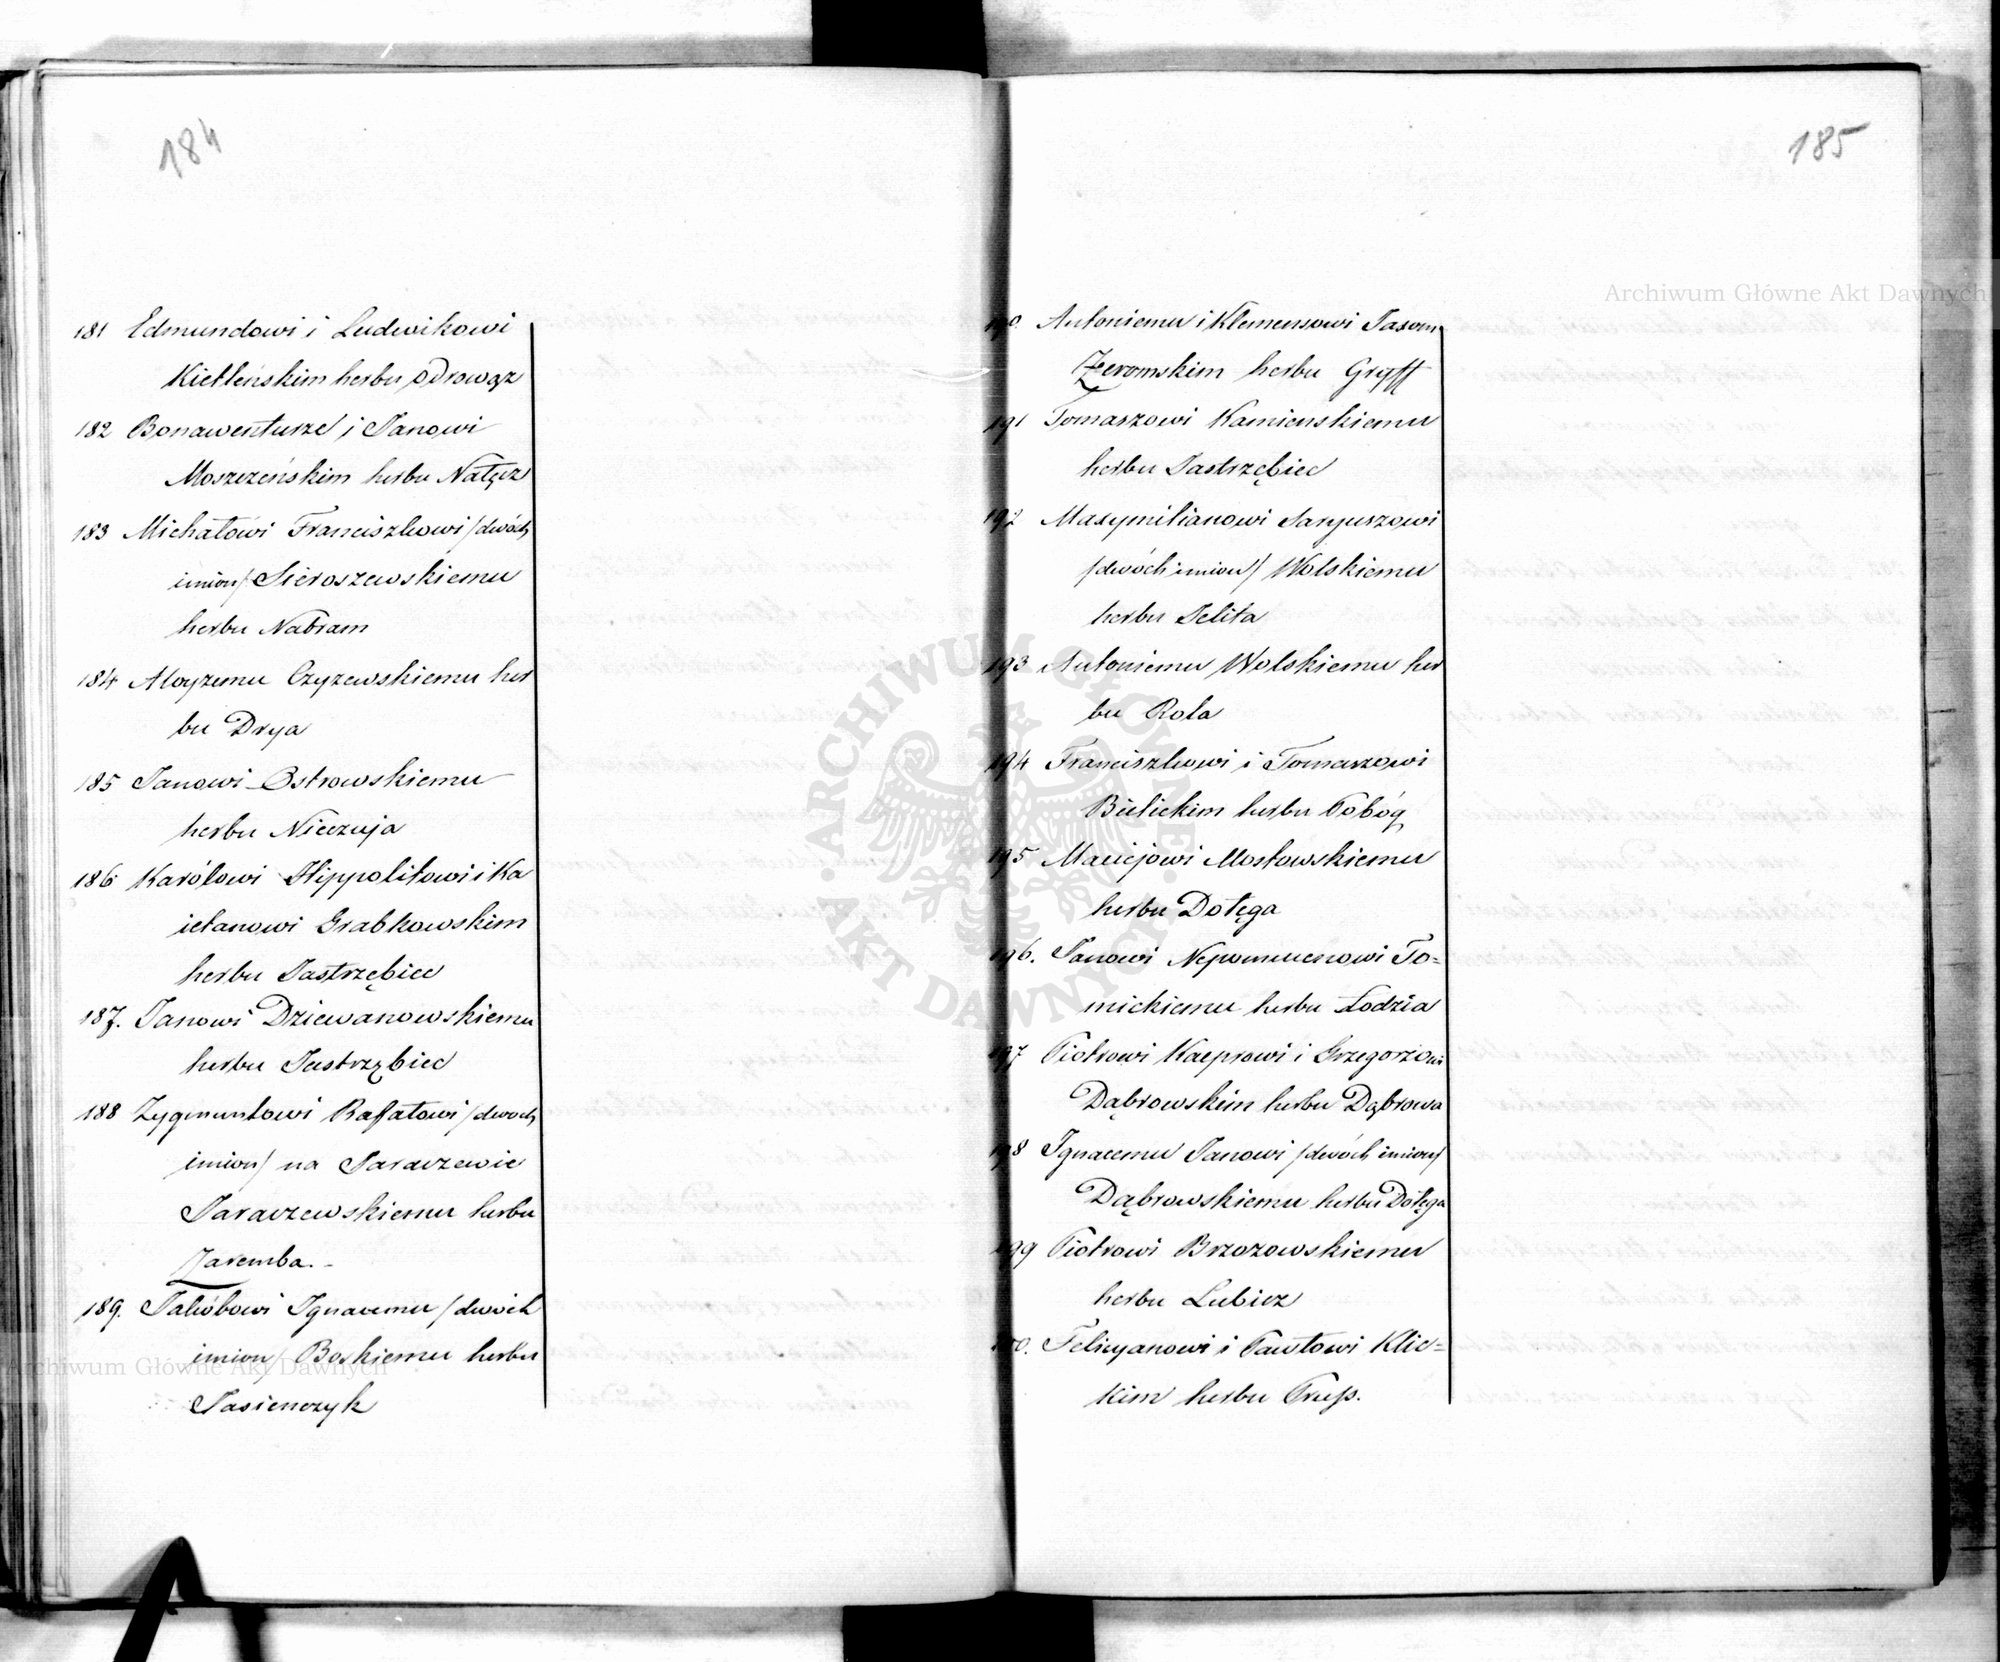 184
181 Edmundowi i Ludwikowi
Kietleńskim herbu Odrowąż
182 Bonawenturze i Janowi
Moszczeńskim herbu Nałęcz
183 Michałowi Franciszkowi /dwóch
imion/ Sieroszewskiemu
herbu Nabram
184 Aloyzemu Czyzewskiemu her
bu Drya
185 Janowi Ostrowskiemu
herbu Nieczuja
186 Karólowi Hippolitowi i Ka
ietanowi Grabkowskim
herbu Jastrzębiec
187. Janowi Dziewanowskiemu
herbu Jastrzębiec
188 Zygmuntowi Raffałowi /dwoch
imion/ na Jaraczewie
Jaraczewskiemu herbu
Zaremba.-
189. Jakóbowi Ignacemu /dwóch
imion/ Boskiemu herbu
Jasienczyk
185
190. Antoniemu i Klemensowi Jaxom
Żeromskim herbu Gryff
191 Tomaszowi Kamienskiemu
herbu Jastrzębiec
192 Maxymilianowi Jaryuszowi
/dwóch imion/ Wolskiemu
herbu Jelita
193 Antoniemu Wolskiemu her
bu Rola
194 Franciszkowi i Tomaszowi
Bielickim herbu Pobóg
195 Maciejowi Mostowskiemu
herbu Dołęga
196. Janowi Nepomucenowi To=
mickiemu herbu Łodzia
197 Piotrowi Kacprowi i Grzegorzowi
Dąbrowskim herbu Dąbrowa
198 Ignacemu Janowi /dwóch imion/
Dąbrowskiemu herbu Dołęga
199 Piotrowi Brzozowskiemu
herbu Lubicz
200. Felicyanowi i Pawłowi Klic=
kim herbu Prus.
Archiwum Główne Akt Dawnych
Archiwum Główne Akt Dawnych
ARCHIWUM GŁÓWNE
AKT DAWNYCH